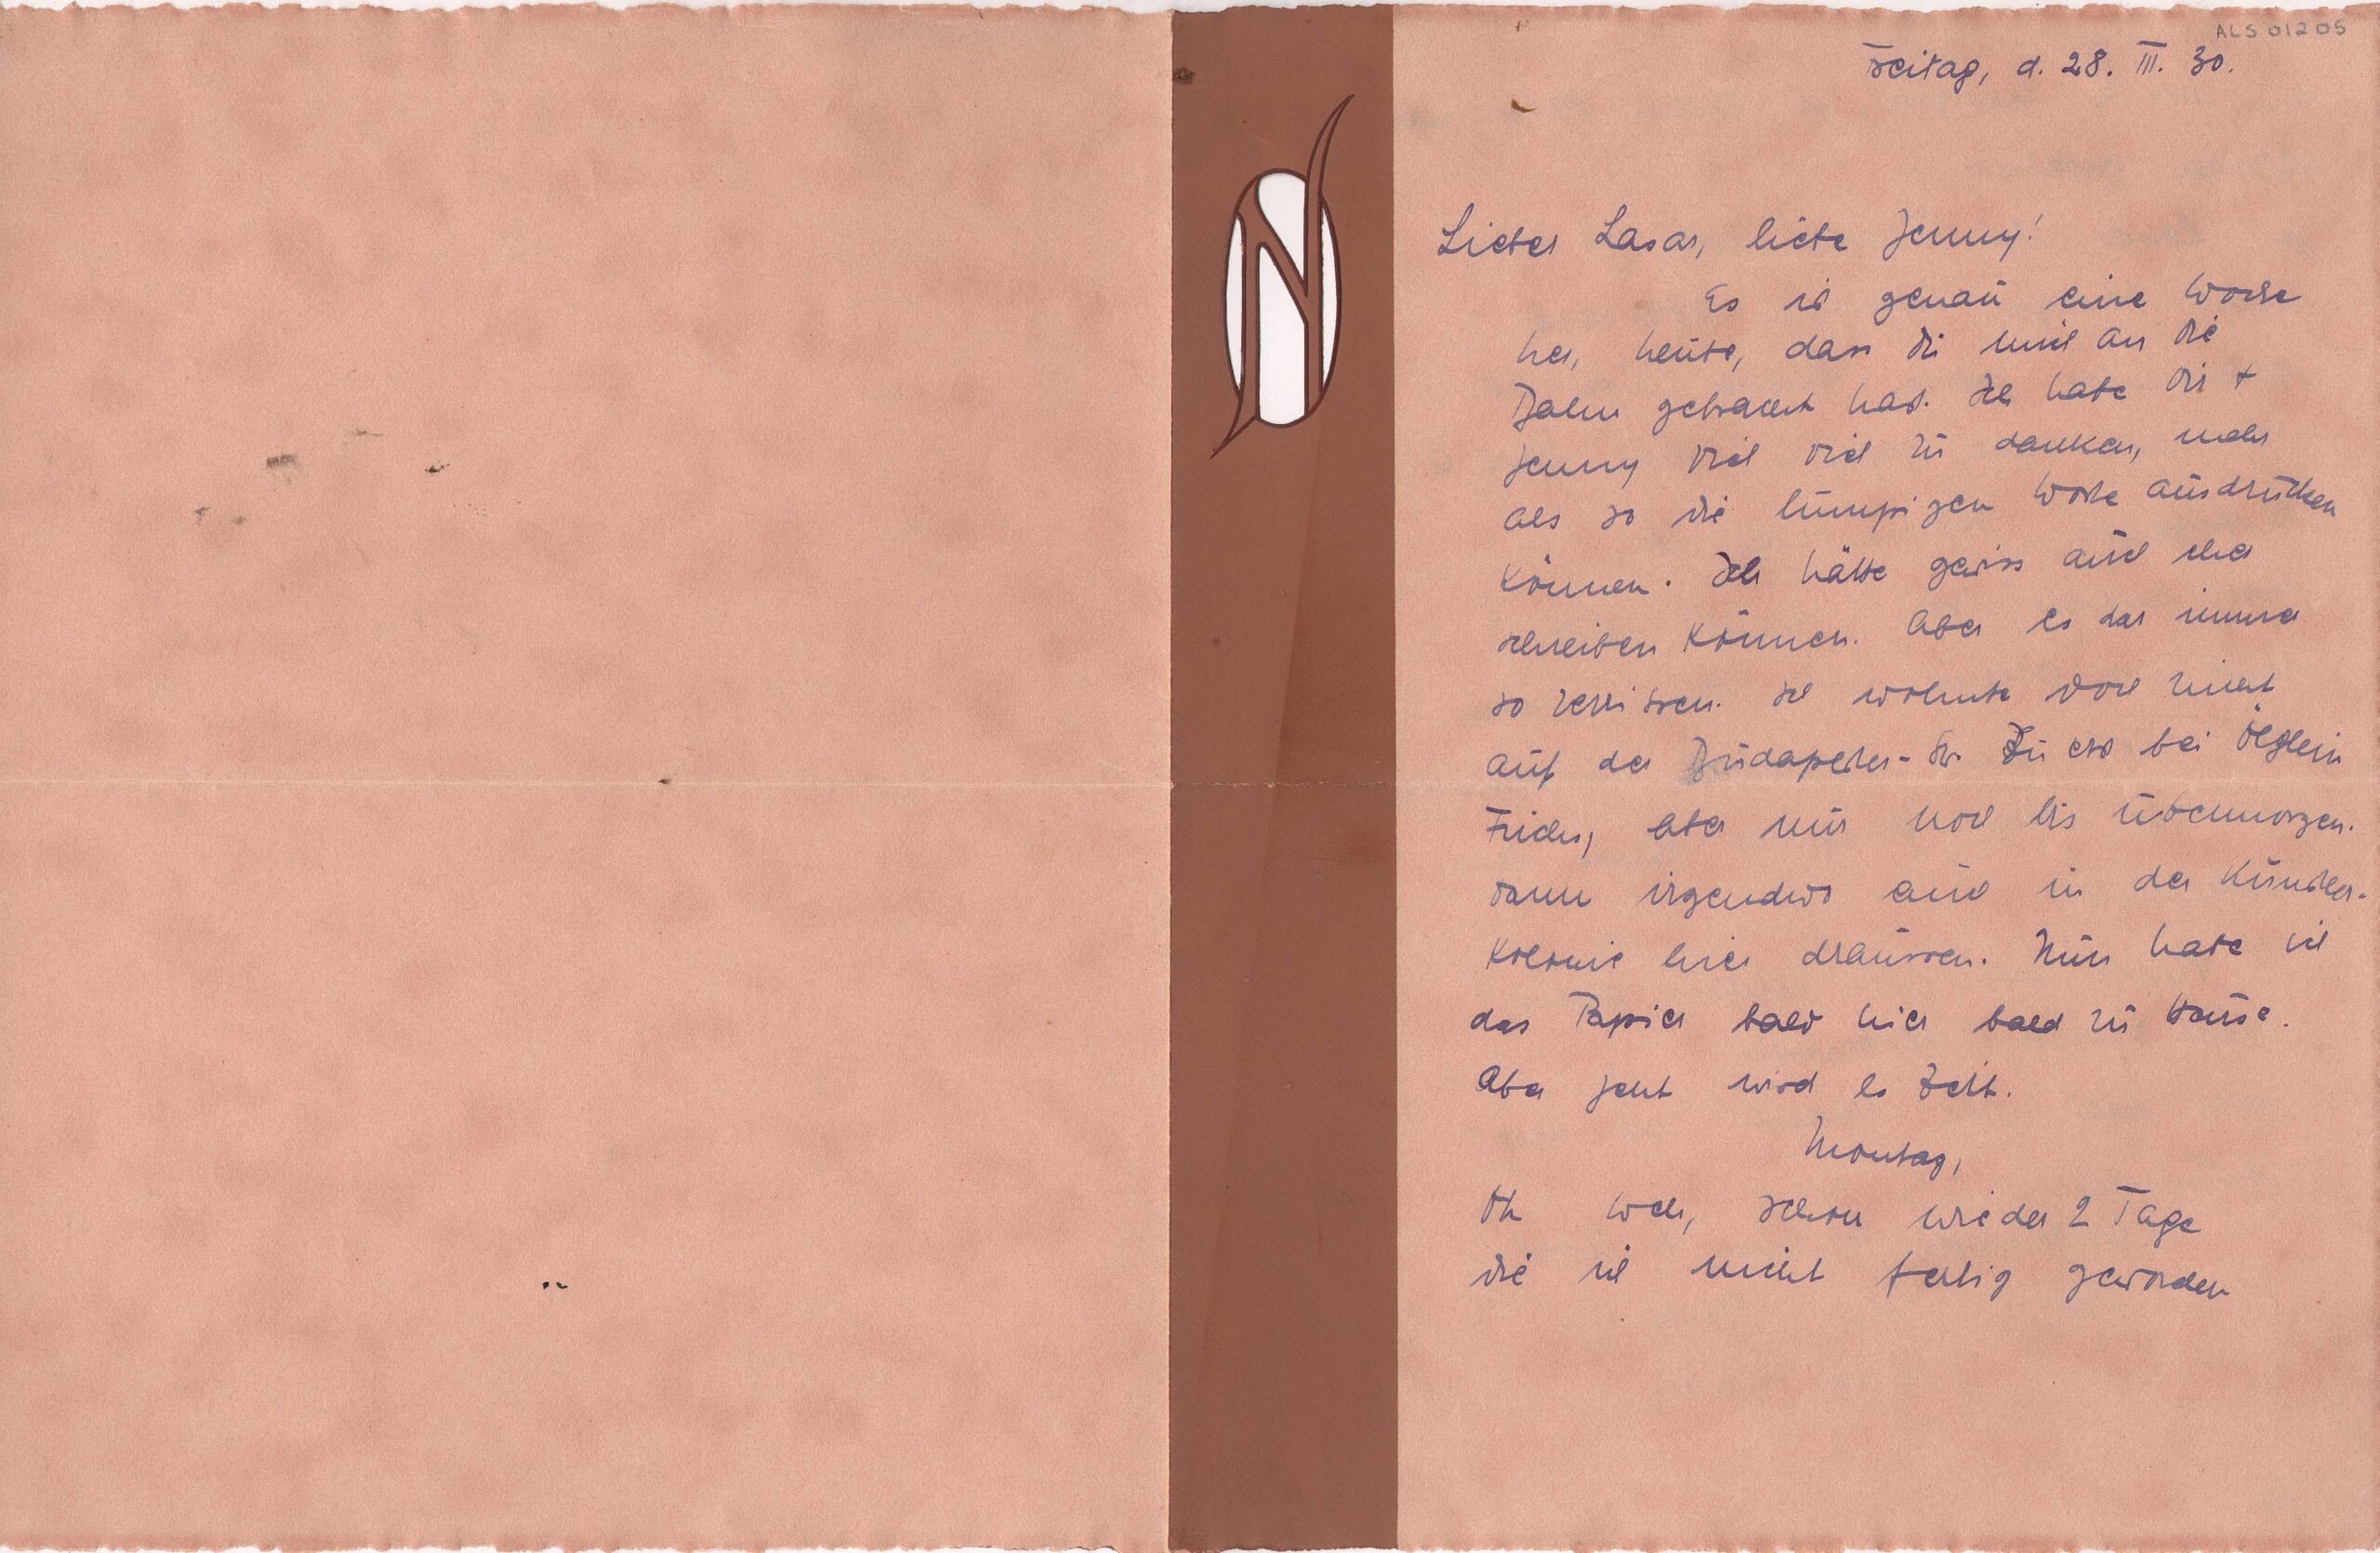 ALS 01205
Freitag, d. 28. III. 30.
N
Lieber Lasar, liebe Jenny!
Es ist genau eine Woche
her, heute, dass Du mich an die
Bahn gebracht hast. Ich habe Dir +
Jenny viel viel zu danken, mehr
als so die lumpigen Worte ausdrücken
können. Ich hätte gewiss auch eher
schreiben können. Aber es war immer
so zerrissen. Ich wohnte doch zuerst
auf der Budapester-Str. Zu erst bei
Fricks, aber nur noch bis übermorgen.
Dann irgendwo auch in der Künstler-
Kolonie hier draussen. Nun habe ich
das Papier bald hier bald zu Hause.
Aber jetzt wird es Zeit.
Montag,
Oh weh, schon wieder 2 Tage
die ich nicht fertig geworden